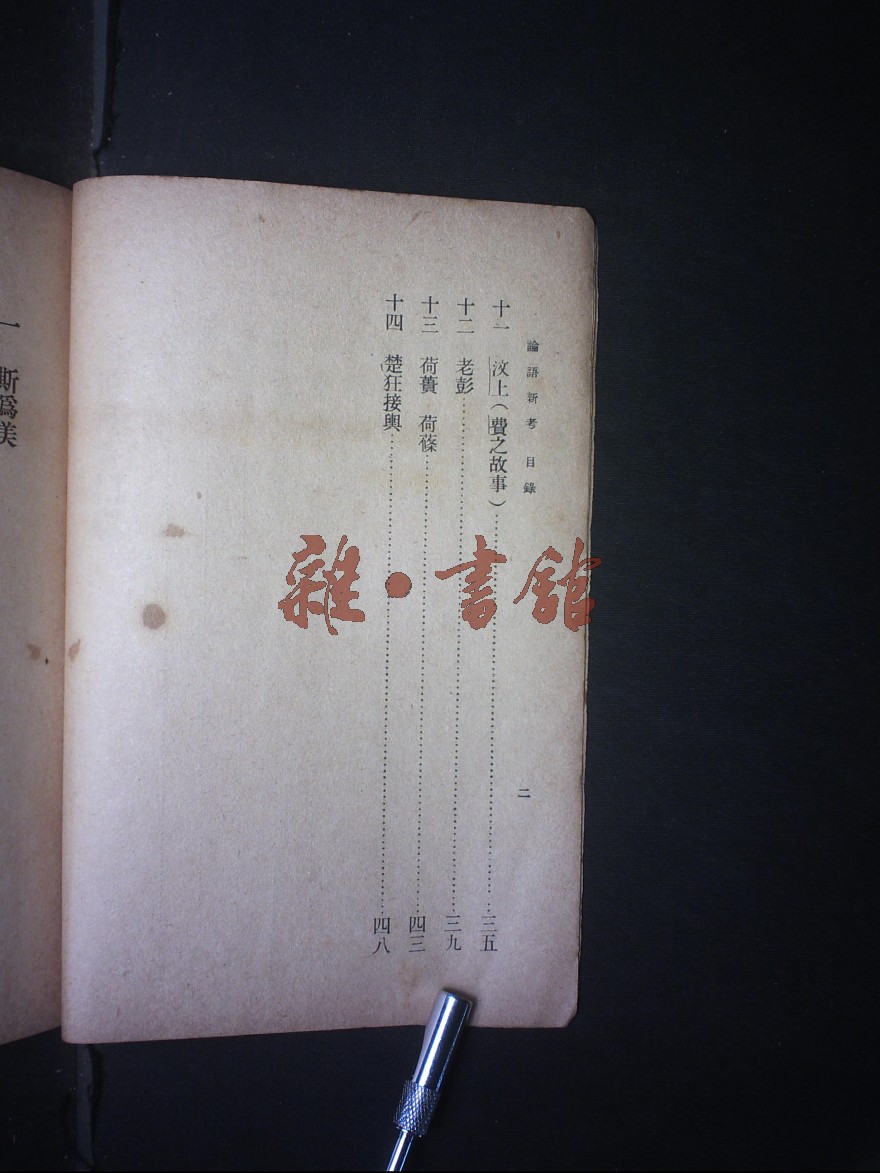 論語新考 目錄
二
十一 汶上（費之故事）…………三五
十二 老彭…………三九
十三 荷蕢 荷蓧…………四三
十四 楚狂接輿…………四八
一 斯爲美
雜·書館